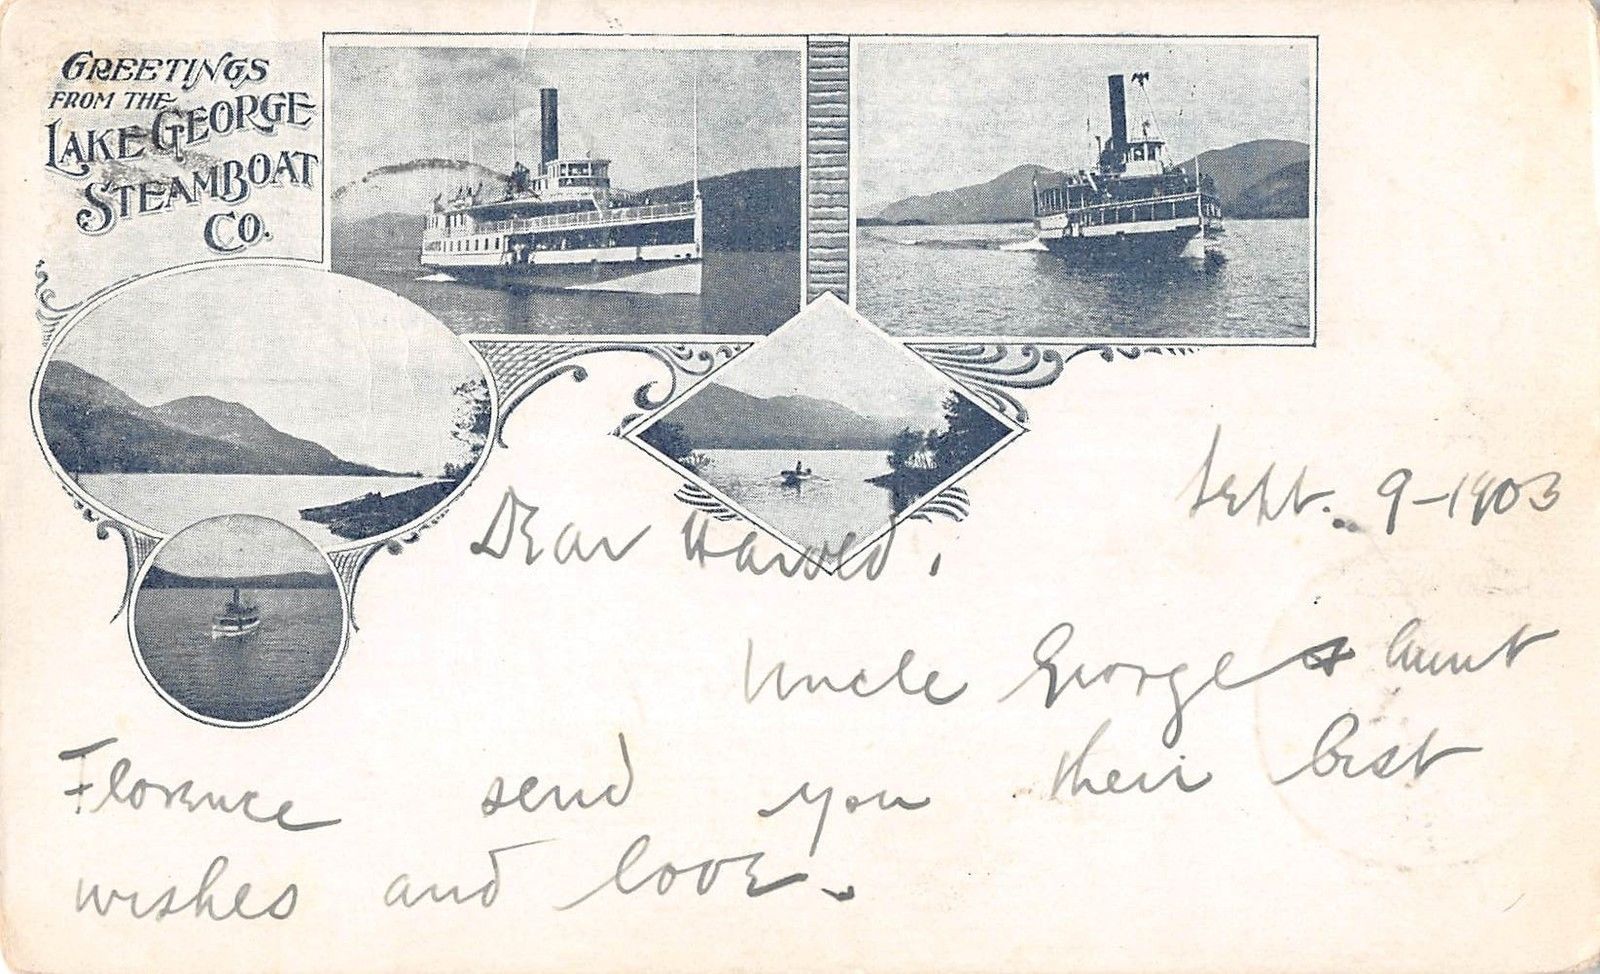 GREETINGS
FROM THE
LAKE GEORGE
STEAMBOAT
CO.
Sept. 9-1903
Dear Harold,
Uncle George & Aunt
Florence send you their best
wishes and love.